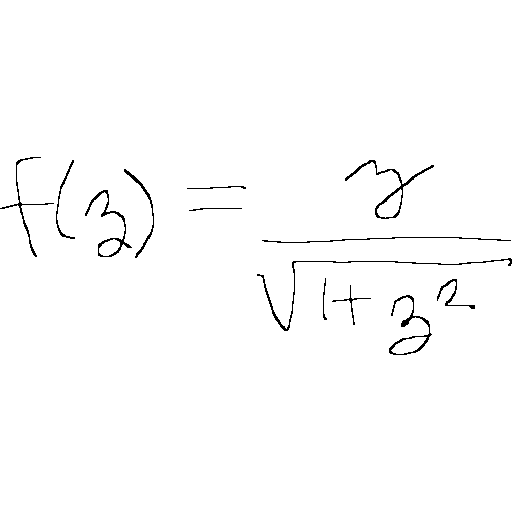 f(z) = \frac{z}{\sqrt{1+z^2}}